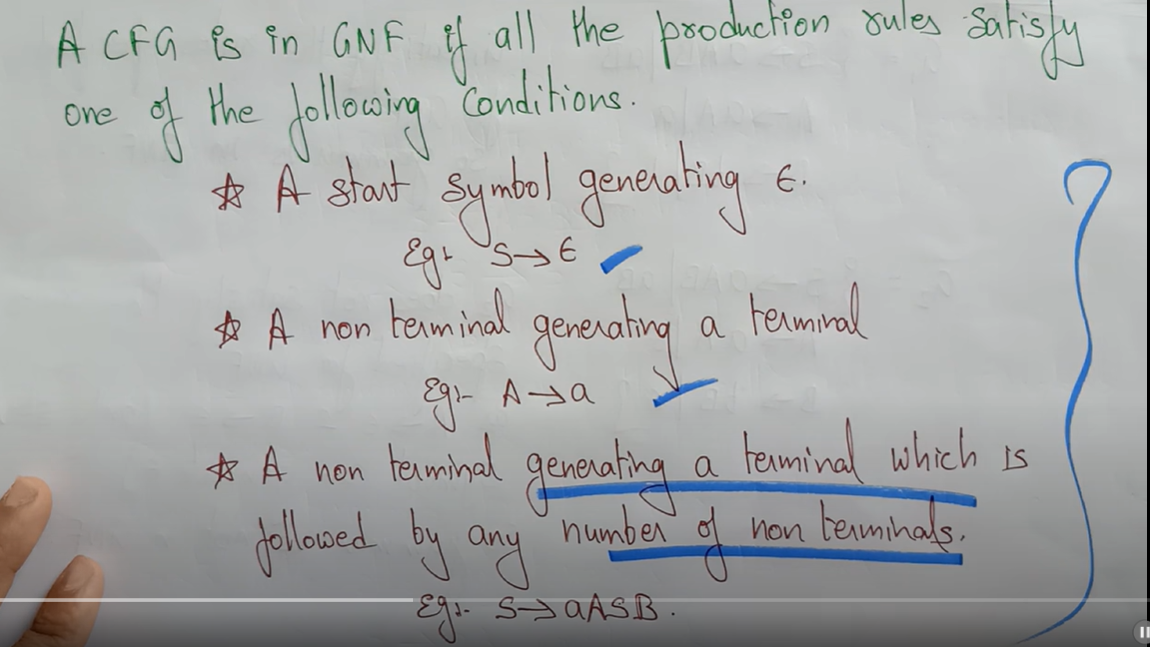 A CFG is in GNF if all the production rules satisfy
one of the following conditions.
☆ A start symbol generating ϵ.
Eg:- S→ϵ
☆ A non terminal generating a terminal
Eg:- A→a
☆ A non terminal generating a terminal which is
followed by any number of non terminals.
Eg:- S→aASB.